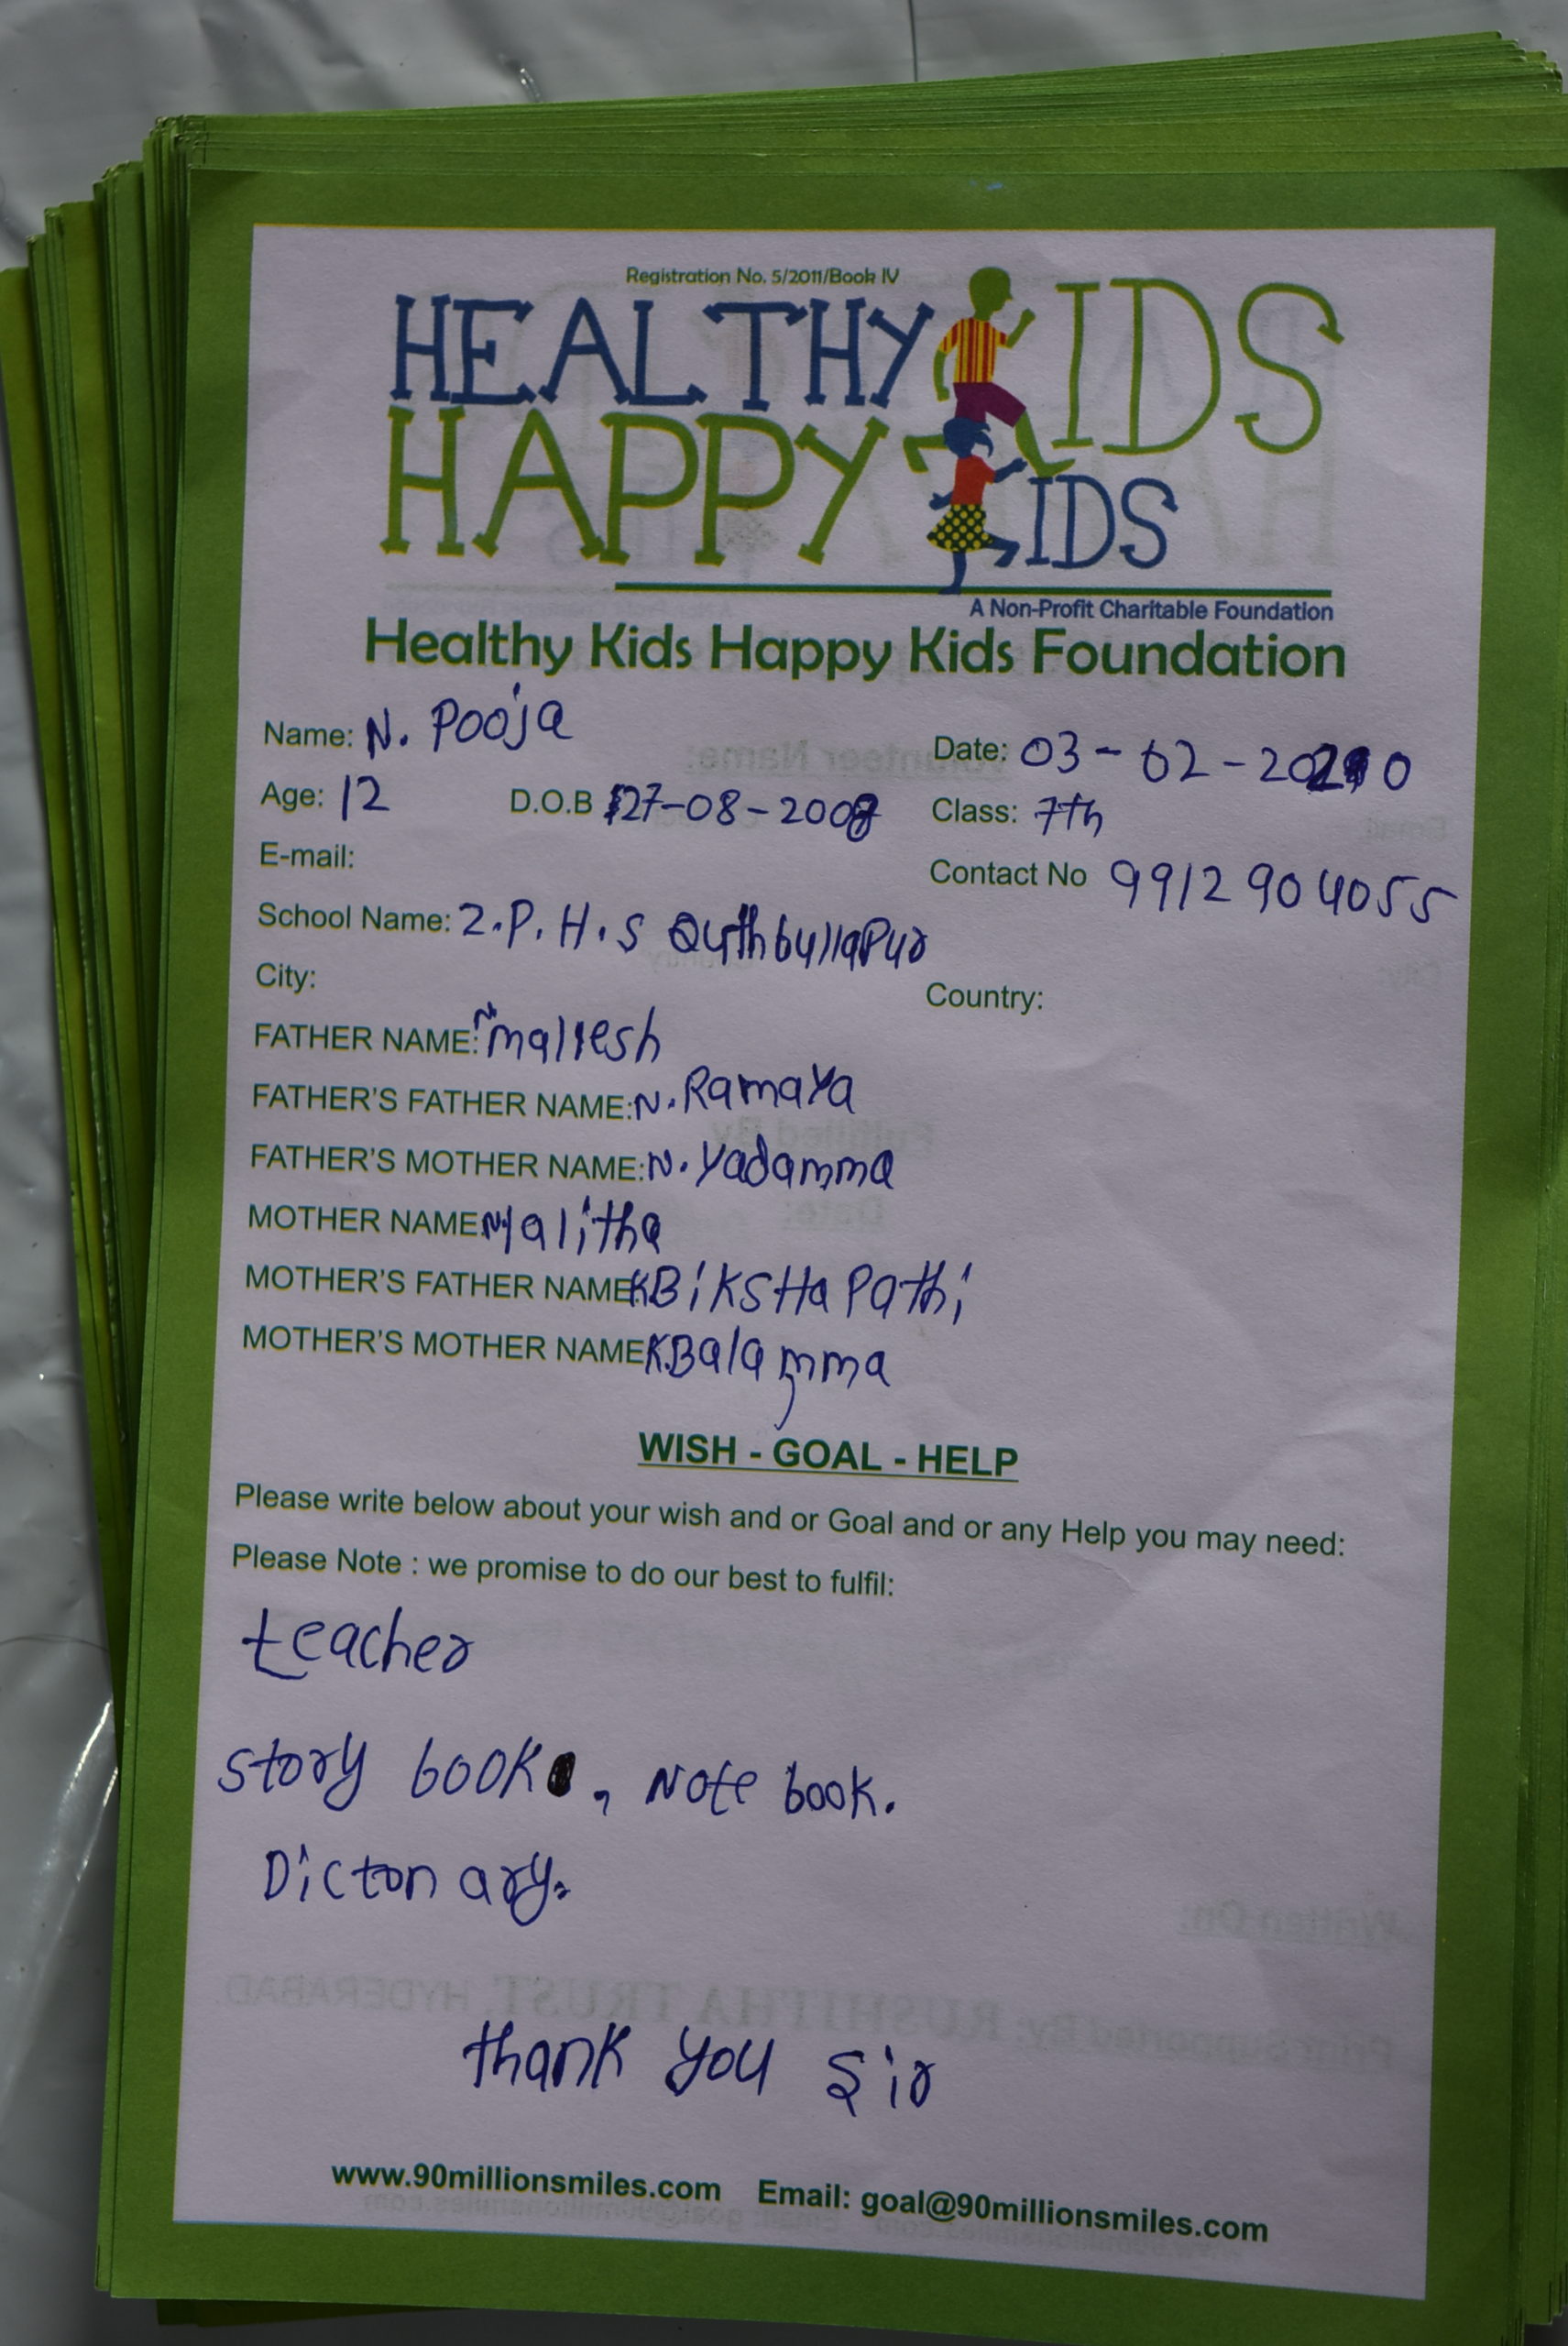 Registration No. 5/2011/Book IV
HEALTHY KIDS
HAPPY KIDS
A Non-Profit Charitable Foundation
Healthy Kids Happy Kids Foundation
Name: N. Pooja Date: 03-02-2020
Age: 12 D.O.B 27-08-2008 Class: 7th
E-mail: Contact No 9912904055
School Name: Z.P.H.S Quthbullapur
City: Country:
FATHER NAME: N mallesh
FATHER'S FATHER NAME: N. Ramaya
FATHER'S MOTHER NAME: N. Yadamma
MOTHER NAME: N lalitha
MOTHER'S FATHER NAME: K Bikshapathi
MOTHER'S MOTHER NAME: K.Balamma
WISH - GOAL - HELP
Please write below about your wish and or Goal and or any Help you may need:
Please Note : we promise to do our best to fulfil:
teacher
story book, Note book.
Dictonary.
thank you sir
www.90millionsmiles.com Email: goal@90millionsmiles.com